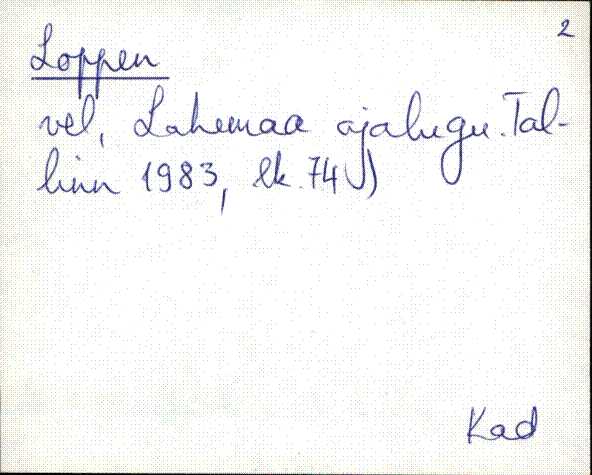 2
Loppen
vel, Lahemaa ajalugu. Tal-
linn 1983, lk. 74)
Kad